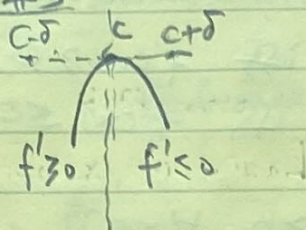 C-δ c c+δ
f'≥0 f'≤0